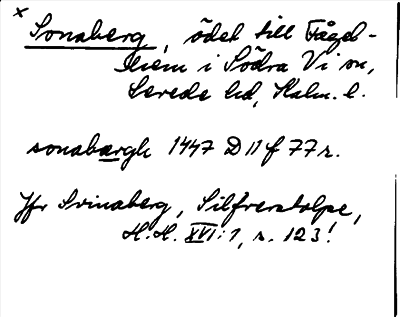 x Sonaberg, ödet till Fågel-
hem i Södra Vi sn,
Sevede hd, Kalm. l.
sonabærgh 1447 D 11 f 77 r.
Jfr Svinaberg, Silfverstolpe,
H.H. XVI:1, s. 123!